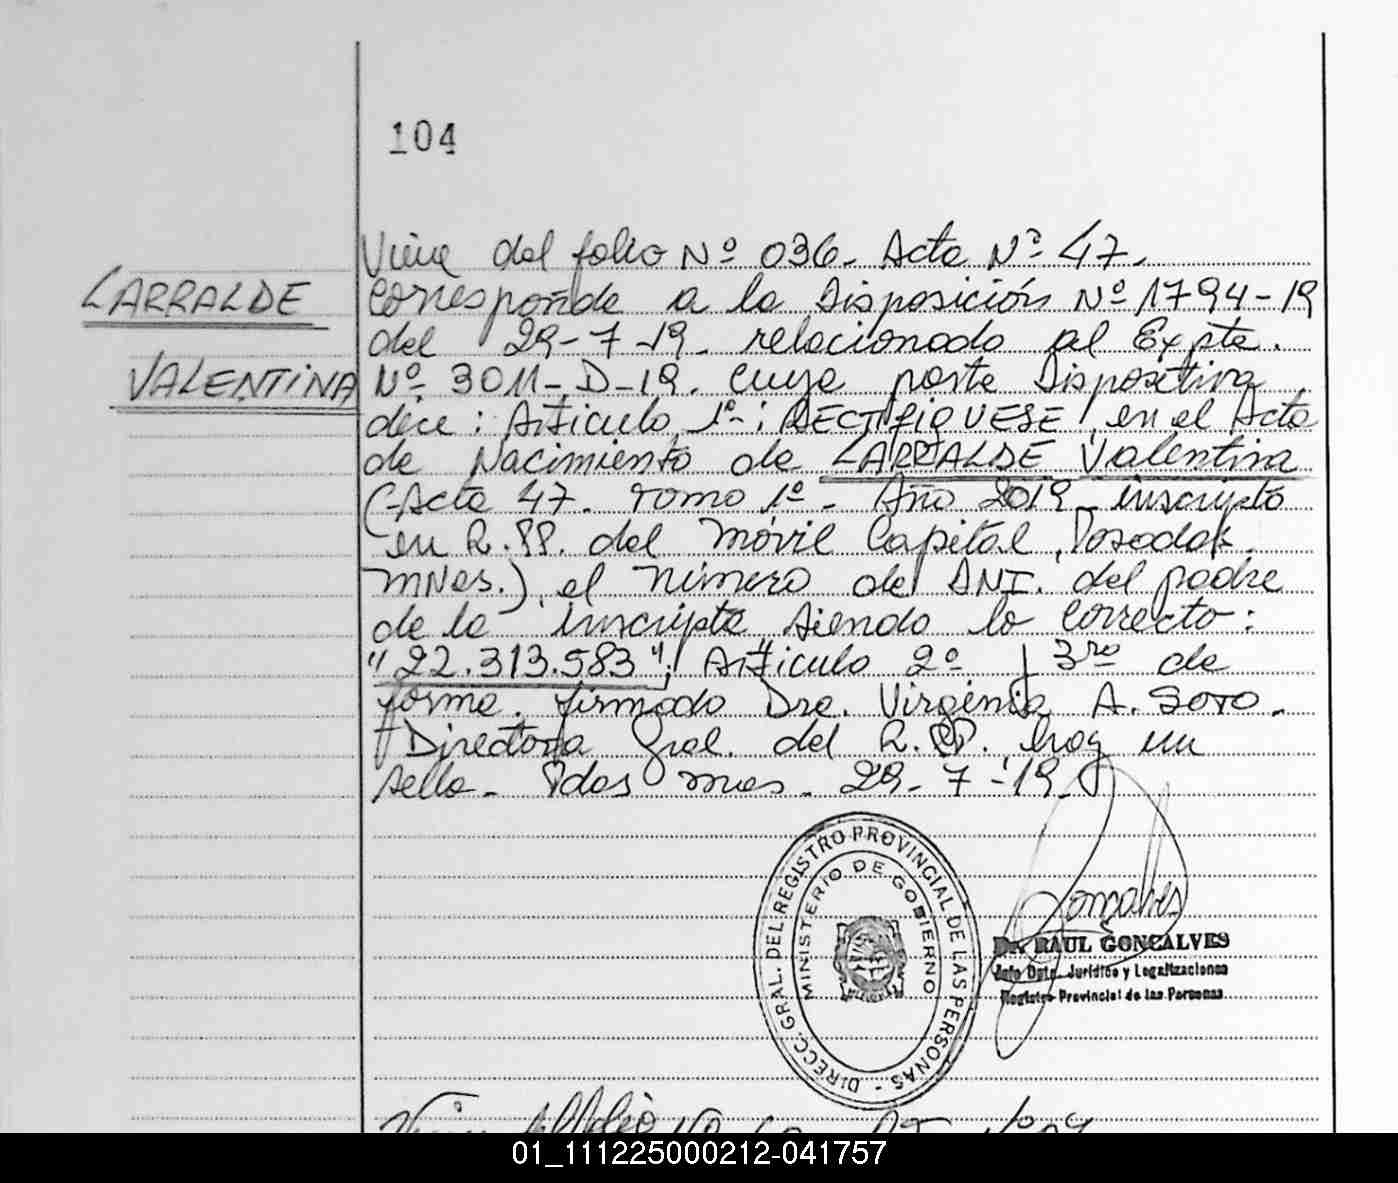 104
Viene del folio Nº 036. Acta Nº 47.
LARRALDE
Corresponde a la Disposición Nº 1794-19
del 29-7-19. relacionado al Expte.
VALENTINA
Nº 3011-D-19. cuya parte Dispositiva
dice: Artículo 1º: RECTIFIQUESE, en el Acta
de Nacimiento de LARRALDE Valentina
(Acta 47. Tomo 1º. Año 2019 inscripta
en R.PP. del Móvil Capital, Posadas.
MNes.), el número de DNI. del padre
de la inscripta siendo lo correcto:
"22.313.583"; Artículo 2º y 3ro de
forma. firmado Dra. Virginia A. SOTO.
Directora Gral. del R.PP. hay un
sello. Pdas mnes. 29-7-19.
DIRECC. GRAL. DEL REGISTRO PROVINCIAL DE LAS PERSONAS -
MINISTERIO DE GOBIERNO
Goncalves
Dr. RAUL GONCALVES
Jefe Dpto. Jurídico y Legalizaciones
Registro Provincial de las Personas
01_111225000212-041757